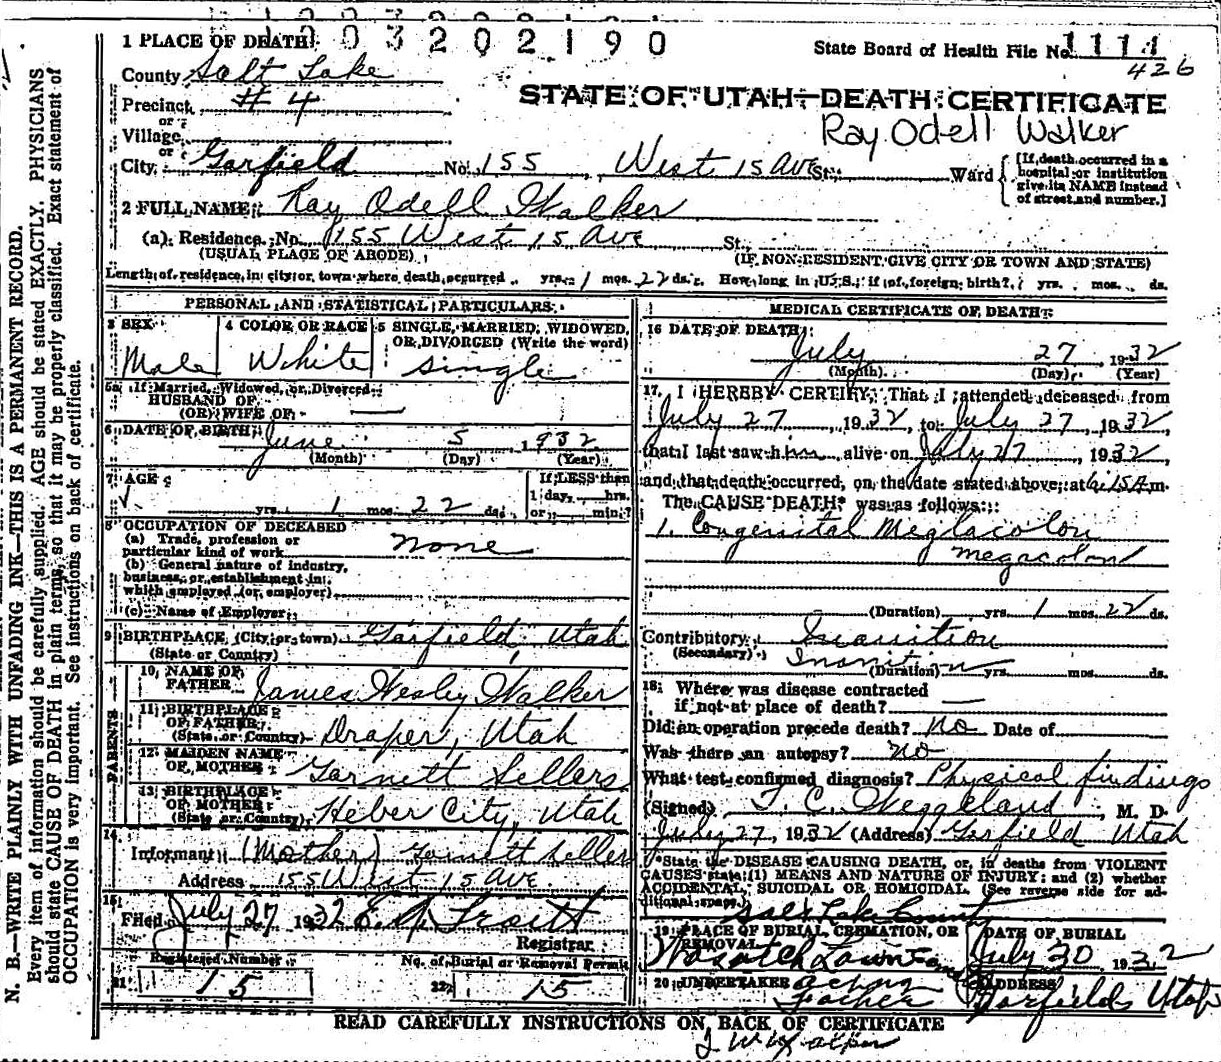 1003202190
1 PLACE OF DEATH
State Board of Health File No. 1114
426
County Salt Lake
STATE OF UTAH—DEATH CERTIFICATE
Precinct #4
or
Ray Odell Walker
Village
or
City Garfield No. 155 West 15 Ave St. Ward
[If death occurred in a
hospital or institution
give its NAME instead
of street and number.]
2 FULL NAME Ray Odell Walker
(a) Residence. No. 155 West 15 Ave St.
(USUAL PLACE OF ABODE) (IF NON-RESIDENT GIVE CITY OR TOWN AND STATE)
Length of residence in city or town where death occurred yrs. 1 mos. 22 ds. How long in U.S., if of foreign birth? yrs. mos. ds.
PERSONAL AND STATISTICAL PARTICULARS
3 SEX 4 COLOR OR RACE 5 SINGLE, MARRIED, WIDOWED,
OR DIVORCED (Write the word)
Male White single
5a If Married, Widowed, or Divorced
HUSBAND OF
(OR) WIFE OF —
6 DATE OF BIRTH June 5 1932
(Month) (Day) (Year)
7 AGE If LESS than
1 day, hrs.
yrs. 1 mos. 22 ds. or min.?
8 OCCUPATION OF DECEASED
(a) Trade, profession or
particular kind of work none
(b) General nature of industry,
business, or establishment in
which employed (or employer)
(c) Name of Employer
9 BIRTHPLACE (City or town) Garfield, Utah
(State or Country)
PARENTS
10 NAME OF
FATHER James Wesley Walker
11 BIRTHPLACE
OF FATHER
(State or Country) Draper, Utah
12 MAIDEN NAME
OF MOTHER Garnett Sellers
13 BIRTHPLACE
OF MOTHER
(State or Country) Heber City, Utah
14
Informant (Mother) Garnett Sellers
Address 155 West 15 Ave
15
Filed July 27 1932
Registrar
Registered Number No. of Burial or Removal Permit
21 15 22 15
MEDICAL CERTIFICATE OF DEATH
16 DATE OF DEATH
July 27 1932
(Month) (Day) (Year)
17 I HEREBY CERTIFY, That I attended deceased from
July 27, 1932, to July 27, 1932,
that I last saw him alive on July 27, 1932,
and that death occurred, on the date stated above, at 6:15A m.
The CAUSE DEATH* was as follows:
1. Congenital Meglacolon
megacolon
(Duration) yrs. 1 mos. 22 ds.
Contributory Inanition
(Secondary) Inanition
(Duration) yrs. mos. ds.
18 Where was disease contracted
if not at place of death? —
Did an operation precede death? No Date of
Was there an autopsy? no
What test confirmed diagnosis? Physical findings
(Signed) T. C. Weggeland, M. D.
July 27, 1932 (Address) Garfield Utah
*State the DISEASE CAUSING DEATH, or, in deaths from VIOLENT
CAUSES state (1) MEANS AND NATURE OF INJURY; and (2) whether
ACCIDENTAL, SUICIDAL OR HOMICIDAL. (See reverse side for ad-
ditional space.)
Salt Lake County
19 PLACE OF BURIAL, CREMATION, OR DATE OF BURIAL
REMOVAL
Wasatch Lawn July 30 1932
20 UNDERTAKER acting ADDRESS
Father Garfield Utah
READ CAREFULLY INSTRUCTIONS ON BACK OF CERTIFICATE
N. B.—WRITE PLAINLY WITH UNFADING INK—THIS IS A PERMANENT RECORD.
Every item of information should be carefully supplied. AGE should be stated EXACTLY. PHYSICIANS
should state CAUSE OF DEATH in plain terms, so that it may be properly classified. Exact statement of
OCCUPATION is very important. See instructions on back of certificate.